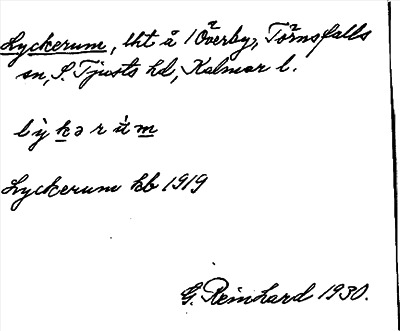 Lyckerum, lht å 1 Överby, Törnsfalls
sn, S. Tjusts hd, Kalmar l.
lỳkərùm
Lyckerum kb 1919
G. Reinhard 1930.